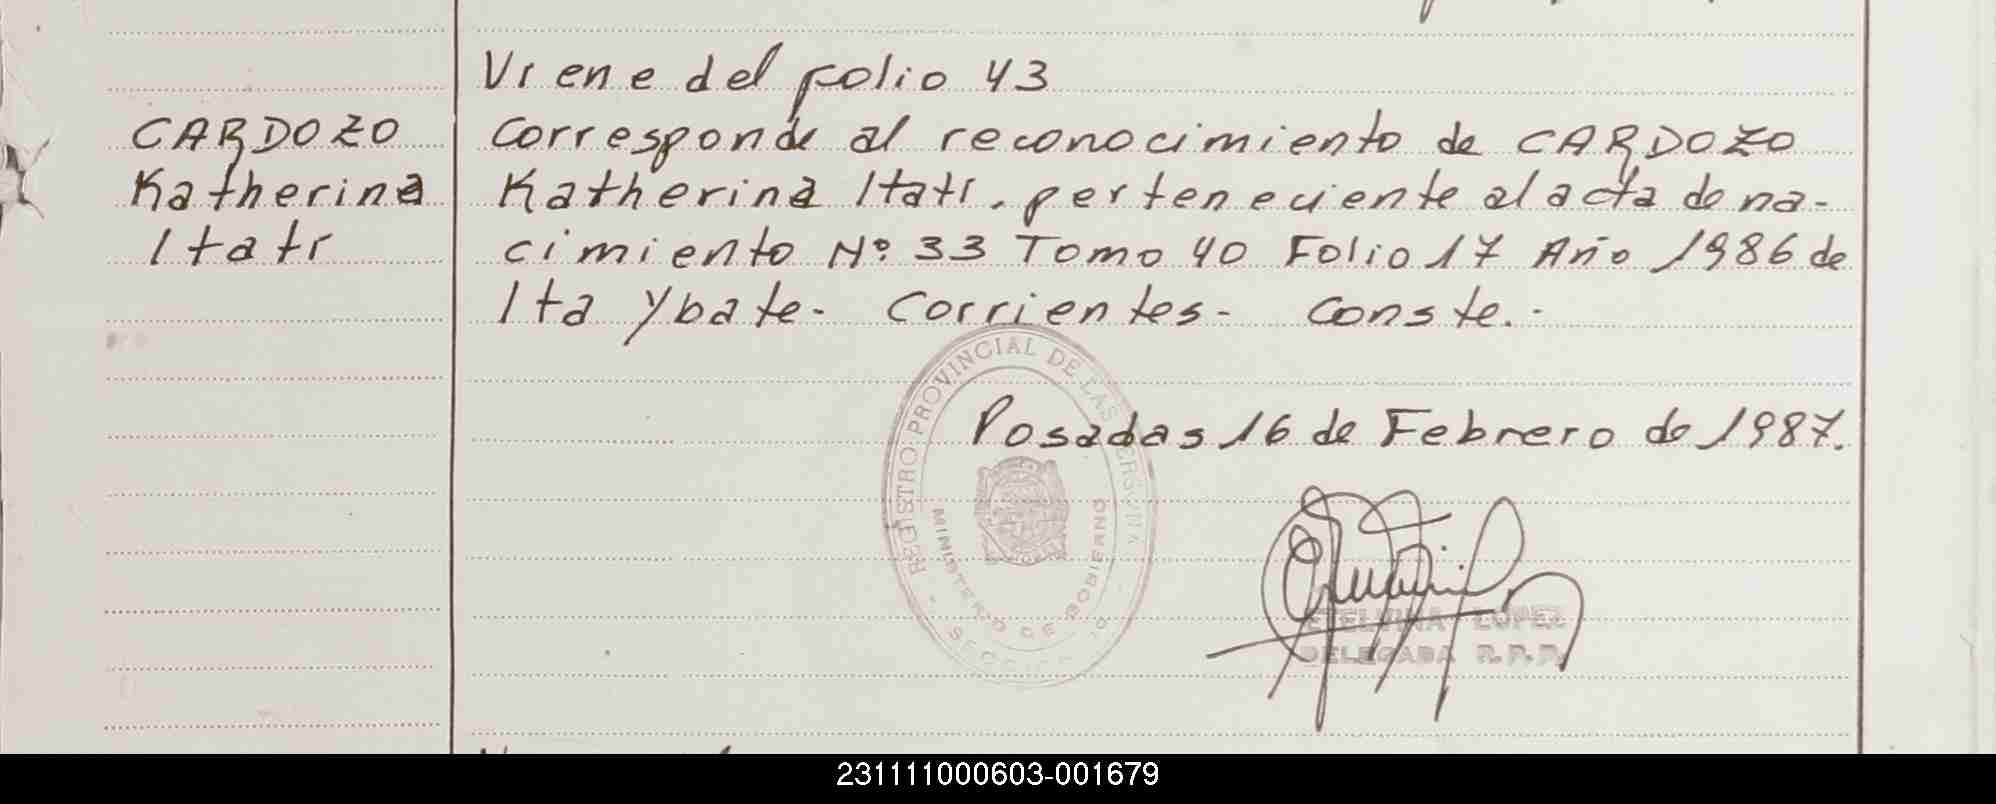 Viene del folio 43
CARDOZO
Katherina
Itatí
corresponde al reconocimiento de CARDOZO
Katherina Itatí, perteneciente al acta de na-
cimiento Nº 33 Tomo 40 Folio 17 Año 1986 de
Ita Ybate - Corrientes - Conste.-
REGISTRO PROVINCIAL DE LAS PERSONAS
MINISTERIO DE GOBIERNO
Posadas 16 de Febrero de 1987.
ETELVINA LOPEZ
DELEGADA R.P.P.
231111000603-001679